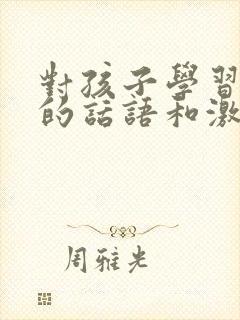 對孩子學習
的話語和激
周雅光